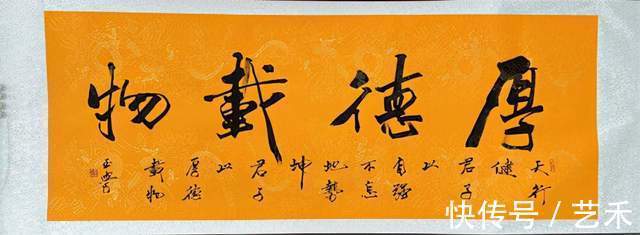 厚德載物
天行
健
君子
以
自强
不息
地勢
坤
君子
以
厚德
載物
快传号 / 艺禾